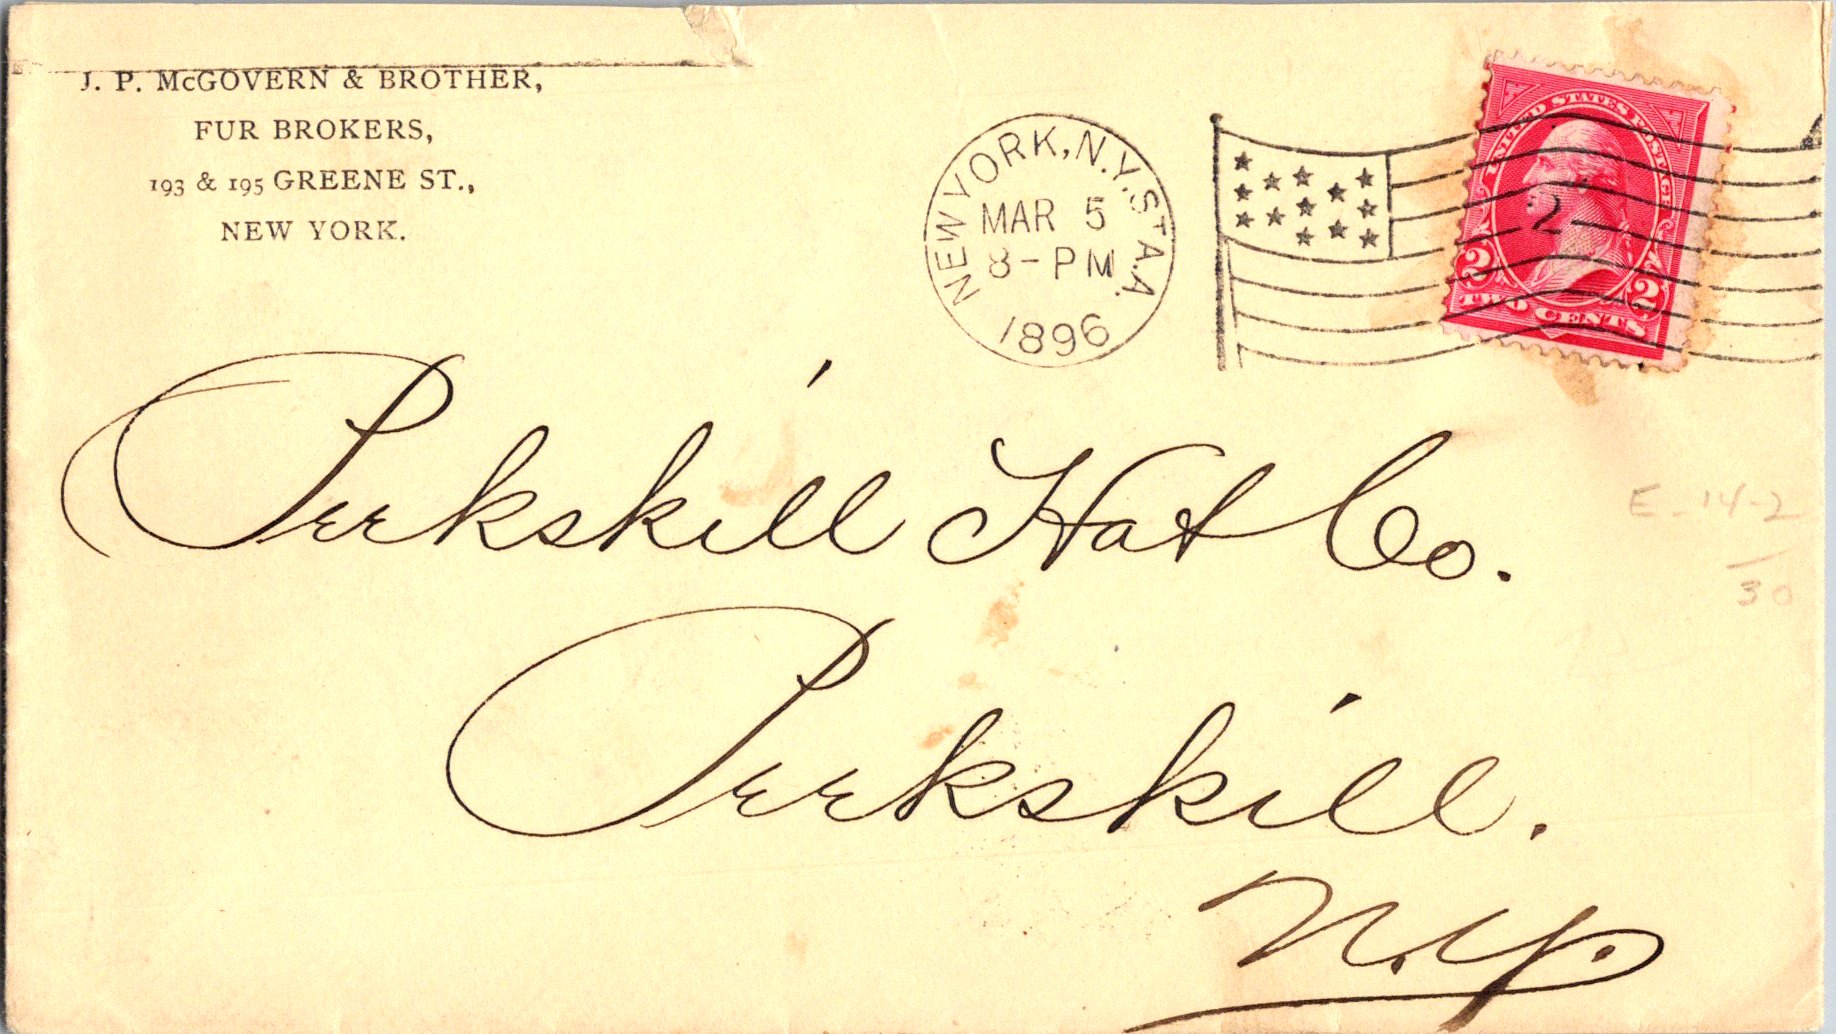 J. P. McGOVERN & BROTHER,
FUR BROKERS,
193 & 195 GREENE ST.,
NEW YORK.
NEW YORK, N.Y. STA A.
MAR 5
8-PM
1896
2
UNITED STATES POSTAGE
2 2
TWO CENTS
Peekskill Hat Co.
Peekskill.
N.Y.
E-14-2
30